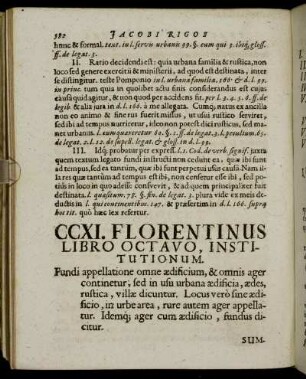 JACOBI RIGOS
hunc & formal. text. in l. servis urbanis 99. §. cum qui 2. ibiq; gloss.
ff. de legat. 3.
II. Ratio decidendi est: quia urbana familia & rustica, non
loco sed genere exercitii & ministerii, ad quod est destinata, inter
se distinguitur. teste Pomponio in l. urbana familia. 166. & d. l. 99.
in princ. tum quia in quolibet actu finis considerandus est cujus
causâ quid agitur, & non quod per accidens fit. per l. 3. ff. de
legib. & alia jura in d. l. 166. à me allegata. Cumq; natus ex ancilla
non eo animo & fine rus fuerit missus, ut usui rustico serviret,
sed ibi ad tempus nutriretur, idem non potest dici rusticus, sed ma-
net urbanus. l. cum quæreretur 60. §. 1. ff. de legat. 3. l. peculium 65.
de legat. 2. l. 12. de supell. legat. & gloss. in d. l. 99.
III. Idq; probatur per expressl. 1. Cod. de verb. signif. juxta
quem textum legato fundi instructi non cedunt ea, quæ ibi sunt
ad tempus, sed ea tantùm, quæ ibi sunt perpetui usus causâ. Nam il-
la res quæ tantùm ad tempus est ibi, non censetur esse ibi, sed po-
tiùs in loco in quo adesse consvevit, & ad quem principaliter fuit
destinata. l. quæsitum. 78. §. fin. de legat. 3. plura vide ex meis de-
ductis in l. qui continentibus. 147. & præsertim in d. l. 166. suprà
hoc tit. quò hæc lex refertur.
CCXI. FLORENTINUS
LIBRO OCTAVO, INSTI-
TUTIONUM.
Fundi appellatione omne ædificium, & omnis ager
continetur, sed in usu urbana ædificia, ædes,
rustica, villæ dicuntur. Locus verò sine ædi-
ficio, in urbe area, rure autem ager appella-
tur. Idemq; ager cum ædificio, fundus di-
citur.
SUM.